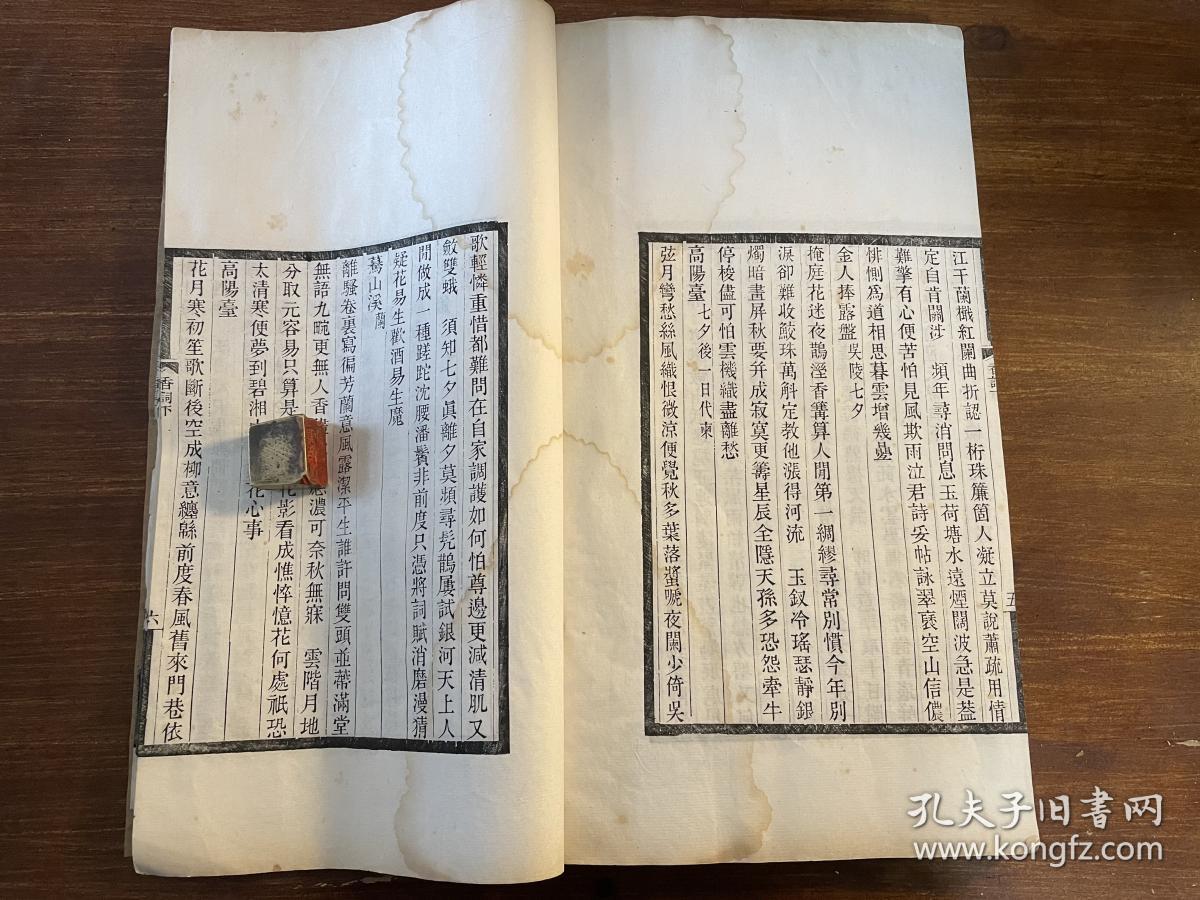 江干蘭檝紅闌曲折認一桁珠簾箇人凝立莫說蕭疏用情
定自肯關涉　頻年尋消問息玉荷塘水遠煙闊波急是葢
難擎有心便苦怕見風欺雨泣君詩妥帖詠翠褎空山信儂
悱惻爲道相思暮雲增幾疊
金人捧露盤 吳陵七夕
掩庭花迷夜鵲溼香篝算人閒第一綢繆尋常別慣今年別
淚卻難收鮫珠萬斛定教他漲得河流　玉釵冷瑤瑟靜銀
燭暗畫屏秋要幷成寂寞更籌星辰全隱天孫多恐怨牽牛
停梭儘可怕雲機織盡離愁
高陽臺 七夕後一日代柬
弦月彎愁絲風織恨微涼便覺秋多葉落螿嗁夜闌少倚吳
五
歌輕憐重惜都難問在自家調護如何怕尊邊更減清肌又
斂雙蛾　須知七夕眞離夕莫頻尋髠鵲屢試銀河天上人
閒做成一種蹉跎沈腰潘鬢非前度只憑將詞賦消磨漫猜
疑花易生歡酒易生魔
驀山溪 蘭
離騷卷裏寫徧芳蘭意風露潔平生誰許問雙頭並蔕滿堂
無語九畹更無人香 濃可奈秋無寐　雲階月地
分取元容易只算是 花影看成憔悴憶花何處祇恐
太清寒便夢到碧湘 花心事
高陽臺
花月寒初笙歌斷後空成柳意纏緜前度春風舊來門巷依
香詞下
六
孔夫子旧书网
www.kongfz.com